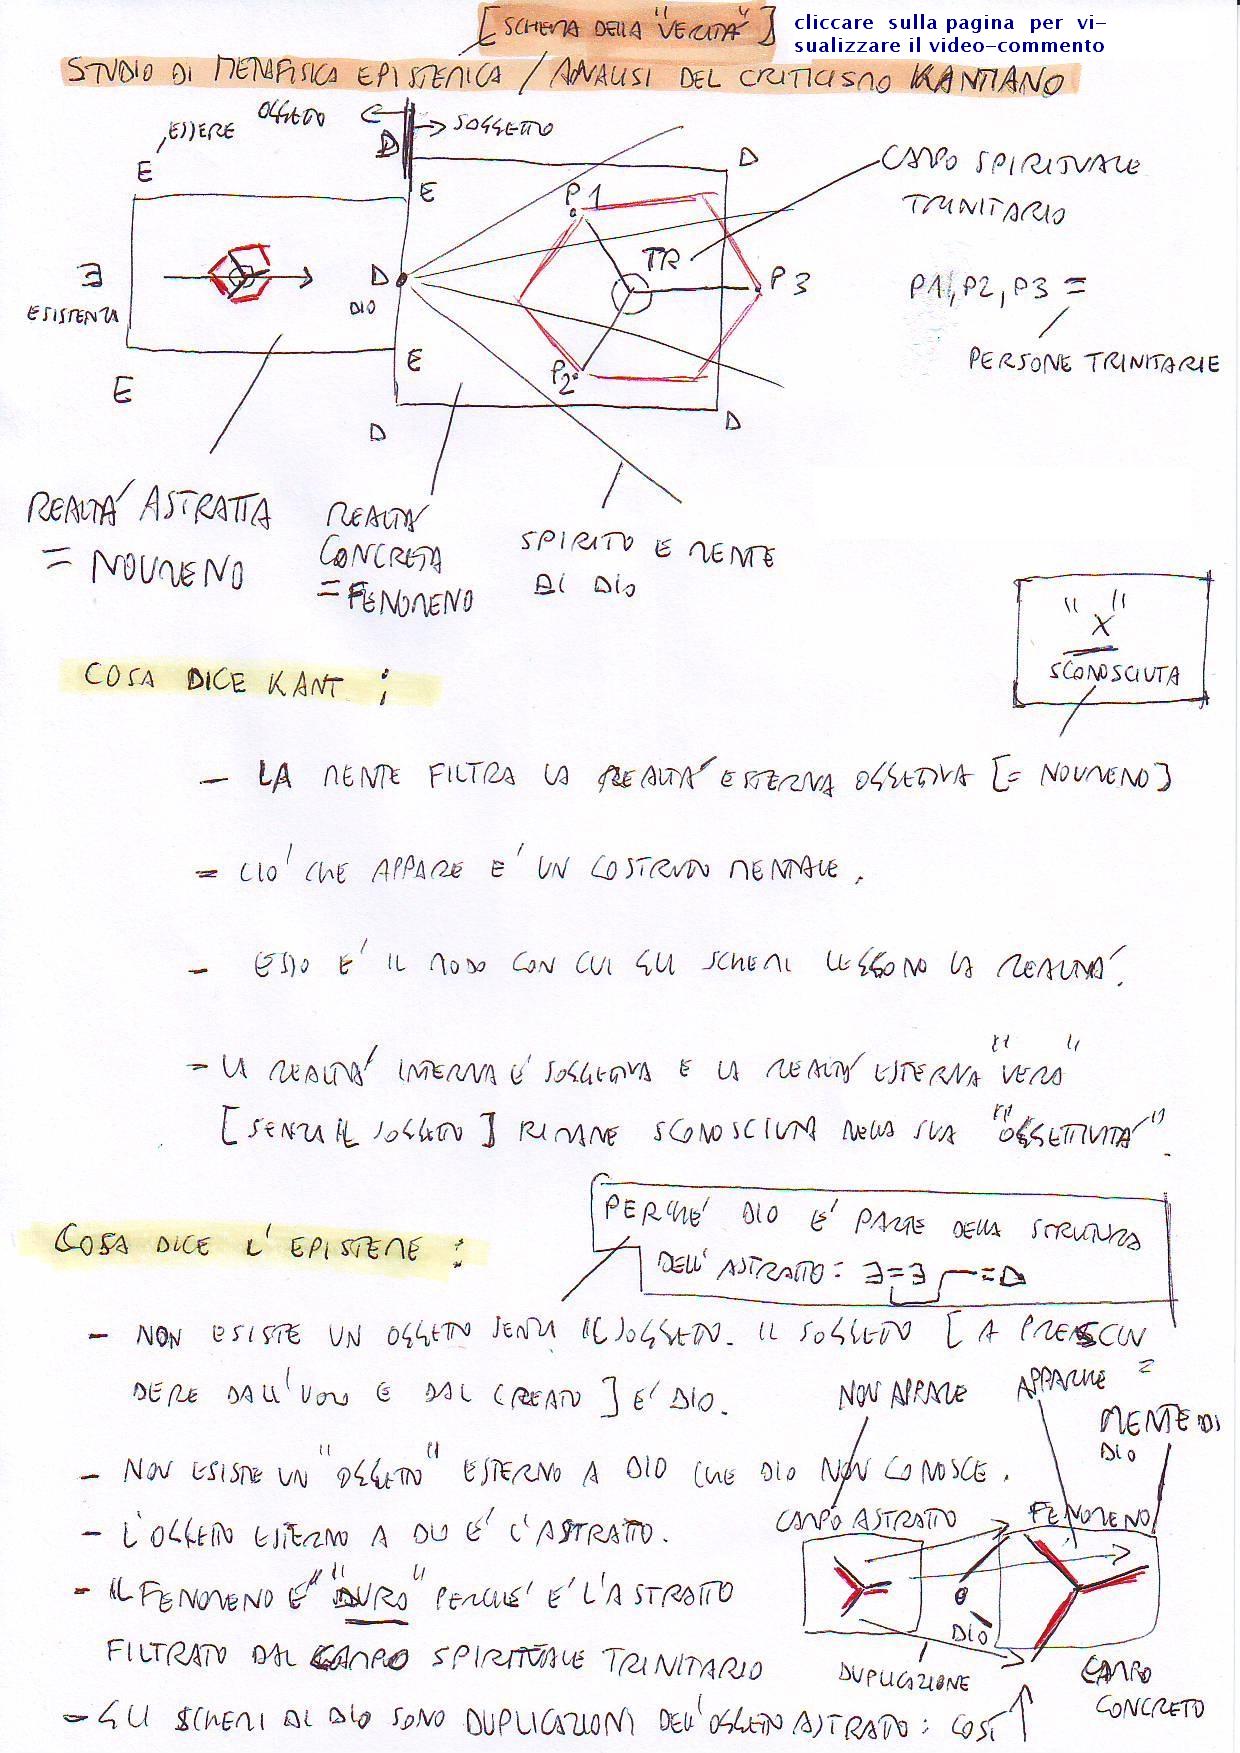 [SCHEMA DELLA "VERITÀ"]
cliccare sulla pagina per vi-
sualizzare il video-commento
STUDIO DI METAFISICA EPISTEMICA / ANALISI DEL CRITICISMO KANTIANO
OGGETTO
SOGGETTO
ESSERE
E
D
E
D
P1
TR
P3
P2
CAMPO SPIRITUALE
TRINITARIO
∃
ESISTENZA
D
DIO
P1, P2, P3 =
PERSONE TRINITARIE
E
E
D
D
REALTÀ ASTRATTA
= NOUMENO
REALTÀ
CONCRETA
= FENOMENO
SPIRITO E MENTE
DI DIO
"X"
SCONOSCIUTA
COSA DICE KANT :
- LA MENTE FILTRA LA REALTÀ ESTERNA OGGETTIVA [= NOUMENO]
= CIO' CHE APPARE E' UN COSTRUTTO MENTALE.
- ESSO E' IL MODO CON CUI GLI SCHEMI LEGGONO LA REALTÀ.
- LA REALTÀ INTERNA E' SOGGETTIVA E LA REALTÀ ESTERNA "VERA"
[SENZA IL SOGGETTO] RIMANE SCONOSCIUTA NELLA SUA "OGGETTIVITÀ".
COSA DICE L'EPISTEME :
PERCHE' DIO E' PARTE DELLA STRUTTURA
DELL'ASTRATTO: ∃=∃ =D
- NON ESISTE UN OGGETTO SENZA IL SOGGETTO. IL SOGGETTO [A PRESCIN
DERE DALL'UOMO E DAL CREATO] E' DIO.
NON APPARE
APPARIRE =
MENTE DI
DIO
- NON ESISTE UN "OGGETTO" ESTERNO A DIO CHE DIO NON CONOSCE.
- L'OGGETTO ESTERNO A DIO E' L'ASTRATTO.
CAMPO ASTRATTO
FENOMENO
- IL FENOMENO E' "DURO" PERCHE' E' L'ASTRATTO
FILTRATO DAL CAMPO SPIRITUALE TRINITARIO
DIO
DUPLICAZIONE
CAMPO
CONCRETO
- GLI SCHEMI DI DIO SONO DUPLICAZIONI DELL'OGGETTO ASTRATTO: COSI'